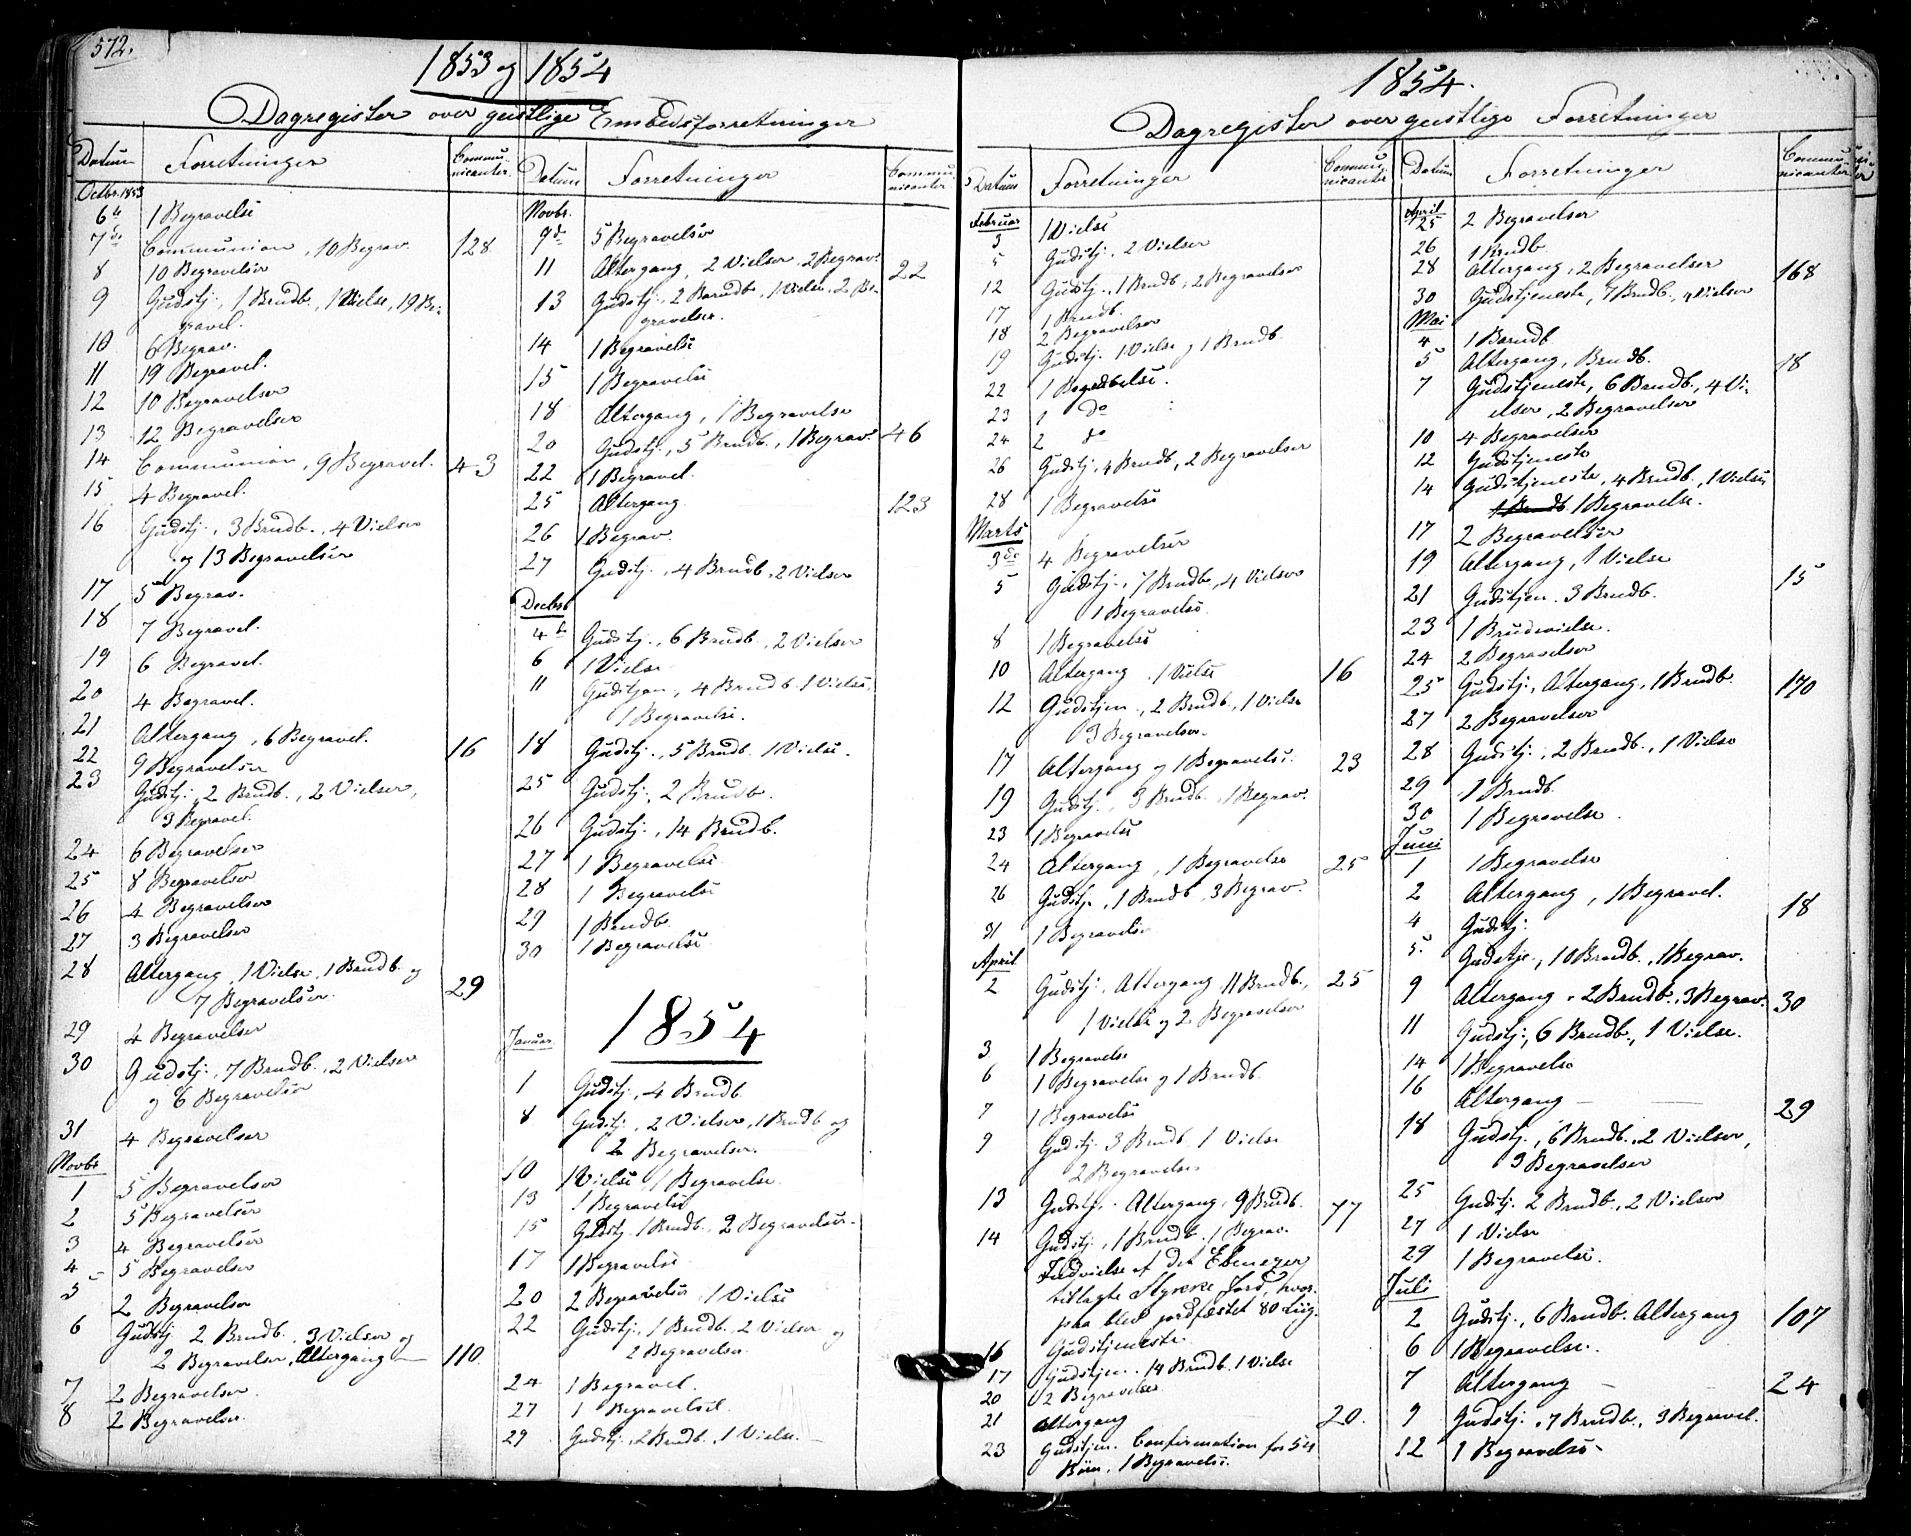 572.
1853 og 1854
Dagregister over geistlige Embedsforretninger
Datum Forretninger Communicanter.
Octbr. 1853
6te 1 Begravelse
7de Communion, 10 Begrav. 128
8 10 Begravelser
9 Gudstj., 1 Brndb., 1 Vielse, 19 Be-
gravel.
10 6 Begrav.
11 19 Begravel.
12 10 Begravelser
13 12 Begravelser
14 Communion, 9 Begravel. 43
15 4 Begravel.
16 Gudstj., 3 Brndb., 4 Vielser
og 13 Begravelser
17 5 Begrav.
18 7 Begravel.
19 6 Begravel.
20 4 Begravel.
21 Altergang, 6 Begravel. 16
22 9 Begravelser
23 Gudstj., 2 Brndb., 2 Vielser,
3 Begravel.
24 6 Begravelser
25 8 Begravelser
26 4 Begravelser
27 3 Begravelser
28 Altergang, 1 Vielse, 1 Brndb. og
7 Begravelser. 29
29 4 Begravelser
30 Gudstj., 7 Brndb., 2 Vielser
og 6 Begravelser
31 4 Begravelser
Novbr
1 5 Begravelser
2 5 Begravelser
3 4 Begravelser
4 5 Begravelser
5 2 Begravelser
6 Gudstj. 2 Brndb. 3 Vielser og
2 Begravelser, Altergang — 110.
7 2 Begravelser.
8 2 Begravelser.
Datum Forretninger Communicanter
Novbr.
9de 5 Begravelser
11 Altergang, 2 Vielser, 2 Begrav. 22
13 Gudstj., 2 Barndb., 1 Vielse, 2 Be-
gravelser.
14 1 Begravelse
15 1 Begravelse
18 Altergang, 1 Begravelse 46
20 Gudstj., 5 Brndb., 1 Begrav.
22 1 Begravel.
25 Altergang 123
26 1 Begrav.
27 Gudstj., 4 Brndb., 2 Vielser
Decbr
4de Gudstj., 6 Brndb., 2 Vielser
6 1 Vielse
11 Gudstjen., 4 Brndb. 1 Vielse,
1 Begravelse.
18 Gudstj., 5 Brndb. 1 Vielse.
25 Gudstj., 2 Brndb.
26 Gudstj., 14 Brndb.
27 1 Begravelse
28 1 Begravelse
29 1 Brndb.
30 1 Begravelse
1854
Januar.
1 Gudstj., 4 Brndb.
8 Gudstj., 2 Vielser, 1 Brndb og
2 Begravelser.
10 1 Vielse, 1 Begravelse.
13 1 Begravelse
15 Gudstj. 1 Brndb., 2 Begravelser.
17 1 Begravelse
20 2 Begravelser, 1 Vielse
22 Gudstj., 1 Brndb. 2 Vielser og
2 Begravelser.
24 1 Begravel.
27 1 Begravelse.
29 Gudstj., 2 Brndb., 1 Vielse. —
1854.
Dagregister over geistlige Forretninger
Datum Forretninger Communicanter
Februar
3 1 Vielse
5 Gudstj., 2 Vielser
12 Gudstj., 1 Brndb., 2 Begravelser
17 1 Brndb.
18 2 Begravelser
19 Gudstj. 1 Vielse og 1 Brndb.
22 1 Begravelse.
23 1 do
24 2 do
26 Gudstj., 4 Brndb., 2 Begravelser
28 1 Begravelse
Marts
3de 4 Begravelser
5 Gudstj., 7 Brndb., 4 Vielser
1 Begravelse.
8 1 Begravelse
10 Altergang, 1 Vielse 16
12 Gudstjen., 2 Brndb., 1 Vielse
3 Begravelser.
17 Altergang og 1 Begravelse. 23
19 Gudstj., 3 Brndb. 1 Begrav.
23 1 Begravelse
24 Altergang, 1 Begravelse 25
26 Gudstje, 1 Brndb. 3 Begrav.
31 1 Begravelse
April
2 Gudstj., Altergang 11 Brndb., 25
1 Vielse og 2 Begravelser
3 1 Begravelse
6 1 Begravelse og 1 Brndb.
7 1 Begravelse
9 Gudstj. 3 Brndb. 1 Vielse
2 Begravelser
13 Gudstj., Altergang, 9 Brndb. 77
14 Gudstj., 1 Brndb. 1 Begrav.
Indvielse af det Ebenezer
tillagte Stykke Jord, hvor-
paa blev jordfæstet 80 Liig.
16 Gudstjeneste.
17 Gudstjen. 14 Brndb. 1 Vielse
20 2 Begravelser
21 Altergang 20.
23 Gudstjen. Confirmation for 54
Børn, 1 Begravelse.
Datum Forretninger Communicanter
April
25 2 Begravelser
26 1 Brndb.
28 Altergang, 2 Begravelser 168
30 Gudstjeneste, 7 Brndb., 4 Vielser
Mai
4 1 Barndb
5 Altergang, Brndb. 18
7 Gudstjeneste, 6 Brndb., 4 Vi-
elser, 2 Begravelser
10 4 Begravelser
12 Gudstjeneste
14 Gudstjeneste, 4 Brndb., 1 Vielse
1 Brndb 1 Begravelse.
17 2 Begravelser
19 Altergang, 1 Vielse 15
21 Gudstjen. 3 Brndb.
23 1 Brudevielse.
24 2 Begravelser
25 Gudstj., Altergang, 1 Brndb. 170
27 2 Begravelser
28 Gudstj., 2 Brndb., 1 Vielse
29 1 Brndb.
30 1 Begravelse.
Juni
1 1 Begravelse
2 Altergang, 1 Begravel. 18
4 Gudstj.
5. Gudstje., 10 Brndb., 1 Begrav.
9 Altergang, 2 Brndb., 3 Begrav. 30
11 Gudstj., 6 Brndb., 1 Vielse.
14 1 Begravelse
16 Altergang — 29
18 Gudstj., 6 Brndb., 2 Vielser,
3 Begravelser
25 Gudstj. 2 Brndb., 2 Vielser
27 1 Vielse
29 1 Begravelse.
Juli
2 Gudstj., 6 Brndb. Altergang 107
6 1 Begravelse.
7 Altergang — 24
9 Gudstj., 7 Brndb., 3 Begravel.
12 1 Begravelse.